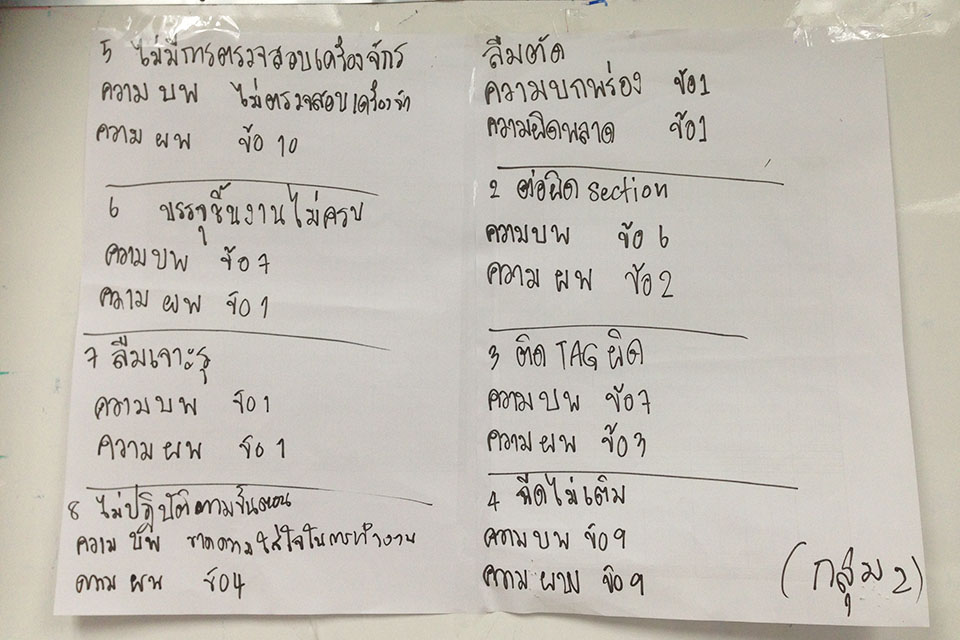 5 ไม่มีการตรวจสอบเครื่องจักร
ความ บพ ไม่ตรวจสอบเครื่องจัก
ความ ผพ ข้อ 10
6 บรรจุชิ้นงานไม่ครบ
ความบพ ข้อ 7
ความ ผพ ข้อ 1
7 ลืมเจาะรู
ความบพ ข้อ 1
ความ ผพ ข้อ 1
8 ไม่ปฏิบัติตามขั้นตอน
ความ บพ ขาดความใส่ใจในการทำงาน
ความ ผพ ข้อ 4
ลืมตัด
ความบกพร่อง ข้อ 1
ความผิดพลาด ข้อ 1
2 ต่อผิด section
ความบพ ข้อ 6
ความ ผพ ข้อ 2
3 ติด TAG ผิด
ความ บพ ข้อ 7
ความ ผพ ข้อ 3
4 ฉีดไม่เต็ม
ความ บพ ข้อ 9
ความ ผพ ข้อ 9
(กลุ่ม 2)